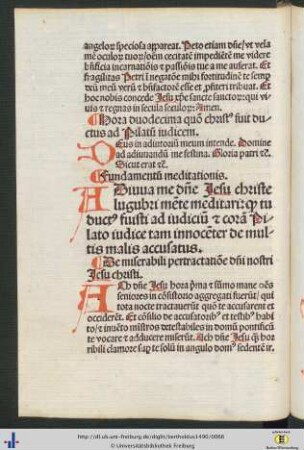 angelorũ speciosa appareat. Peto etiam dñe/ vt vela
mẽ oculorũ tuorũ/ oẽm cecitatẽ impediẽtẽ me videre
bñficia incarnatiõis et passiõis tue a me auferat. Et
fragilitas Petri ĩ negatõne mihi fortitudinẽ te semp
deũ meũ verũ et bñfactorẽ esse et ꝓfiteri tribuat. Et
hoc nobis concede Jesu xp̃e sancte sanctorũ: qui vi
uis et regnas in secula seculorũ: Amen.
Hora duodecima quõ christꝰ fuit du
ctus ad Pilatũ iudicem.
DEus in adiutoriũ meum intende. Domine
ad adiuuandũ me festina. Gloria patri ꝛc̃.
Sicut erat ꝛc̃.
Fundamentũ meditationis.
ADiuua me dñe Jesu christe
lugubri mẽte meditari: qͥ
ductꝰ fuisti ad iudiciũ et corã Pi
lato iudice tam innocẽter de mul
tis malis accusatus.
De miserabili pertractatiõne dñi nostri
Jesu christi.
ACh dñe Jesu hora pͥma et sũmo mane oẽs
seniores in cõsistorio aggregati fuerũt/ qui
tota nocte tractauerũt quõ te accusarent et
occiderẽt. Et cõsilio de accusatoribꝰ et testibꝰ habi
to/ ĩ mistros detestabiles in domũ pontificũ
te vocare et adducere miserũt. Ach dñe Jesu hor
ribili clamore te solũ in angulo domꝰ sedentẽ
http://dl.ub.uni-freiburg.de/diglit/bertholdus1490/0088
© Universitätsbibliothek Freiburg